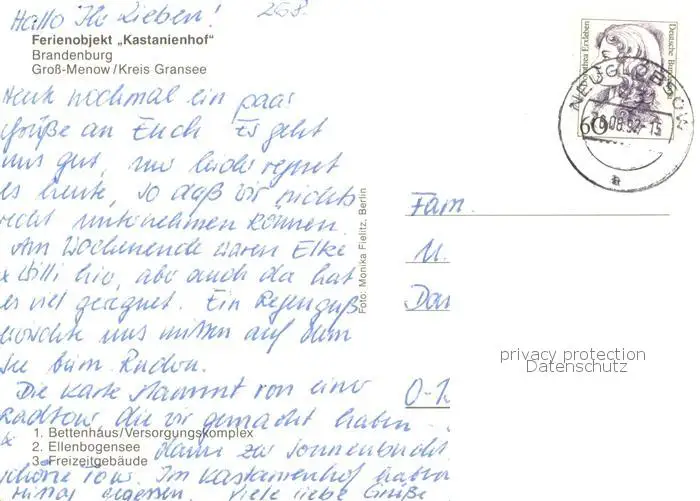 Hallo Ihr Lieben! 26.8.
Ferienobjekt „Kastanienhof“
Brandenburg
Groß-Menow/Kreis Gransee
Heute nochmal ein paar
Grüße an Euch. Es geht
uns gut, nur leider regnet
es heute, so daß wir nichts
recht unternehmen können.
Am Wochenende waren Elke
& Willi hier, aber auch da hat
es viel geregnet. Ein Regenguß
erwischte uns mitten auf dem
See beim Rudern.
Die Karte stammt von einer
Radtour, die wir gemacht haben
1. Bettenhaus/Versorgungskomplex
2. Ellenbogensee
3. Freizeitgebäude
schöne Tour. Im Kastanienhof haben
Mittag gegessen. Viele liebe Grüße
Foto: Monika Fielitz, Berlin
Deutsche Bun
60
NEUGLOBSOW
.08.92-15
a
Fam.
u.
Das
O-1
privacy protection
Datenschutz